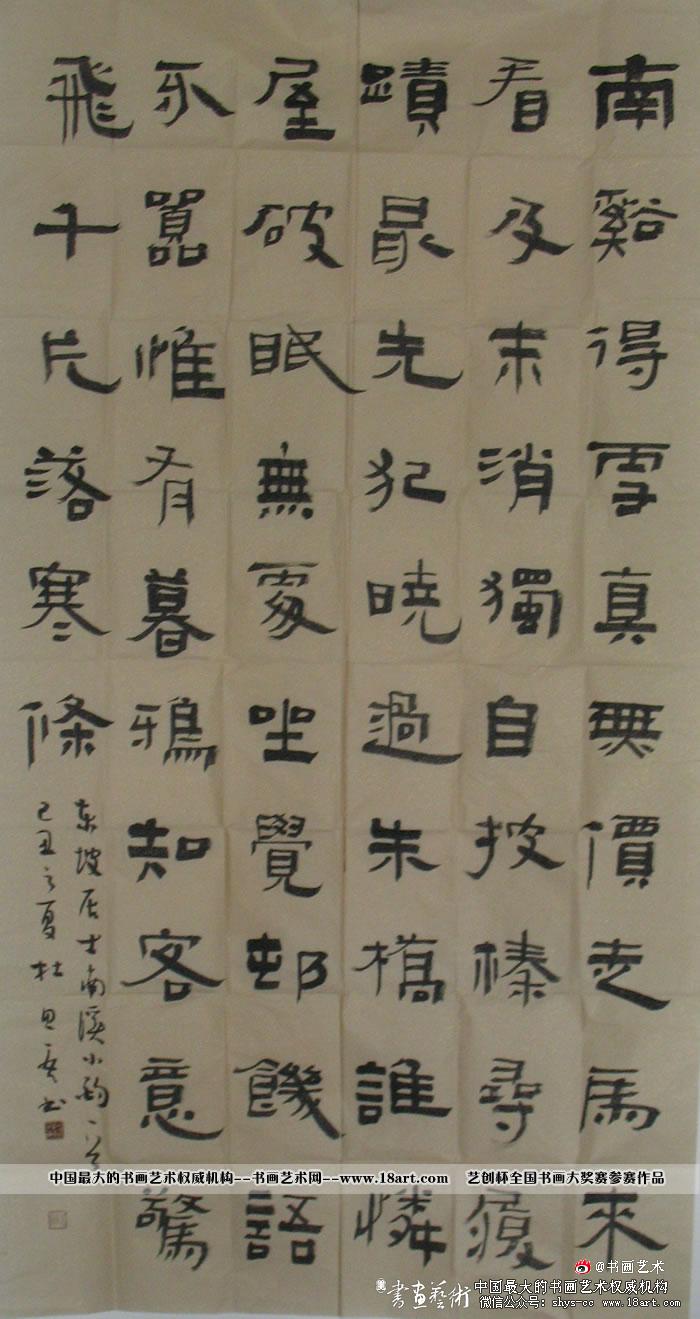 南谿得雪真無價走馬來
看及未消獨自披榛尋履
蹟最先犯曉過朱橋誰憐
屋破眠無處坐覺邨饑語
不囂惟有暮鴉知客意驚
飛千片落寒條
东坡居士南溪小韵一首
己丑之夏 杜思 书
中国最大的书画艺术权威机构--书画艺术网--www.18art.com 艺创杯全国书画大奖赛参赛作品
@书画艺术
書画藝術 中国最大的书画艺术权威机构
微信公众号: shys-cc www.18art.com